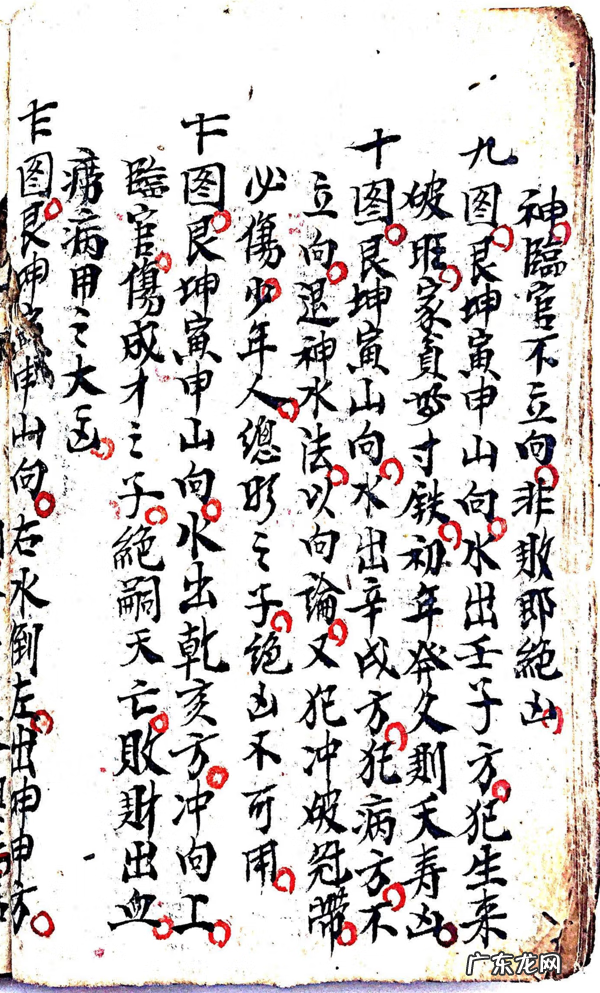 神臨官不立向非敗即絕凶
九图艮坤寅申山向水出壬子方犯生来
破旺家貧如寸鉄初年發久則夭寿凶
十图艮坤寅山向水出辛戌方犯病方不
立向退神水法以向論又犯冲破冠帶
必傷少年人總明之子絕凶不可用
十一图艮坤寅申山向水出乾亥方冲向上
臨官傷成才之子絕嗣夭亡敗財出血
癆病用之大凶
十二图艮坤寅申山向右水倒左出坤申方
广东龙网